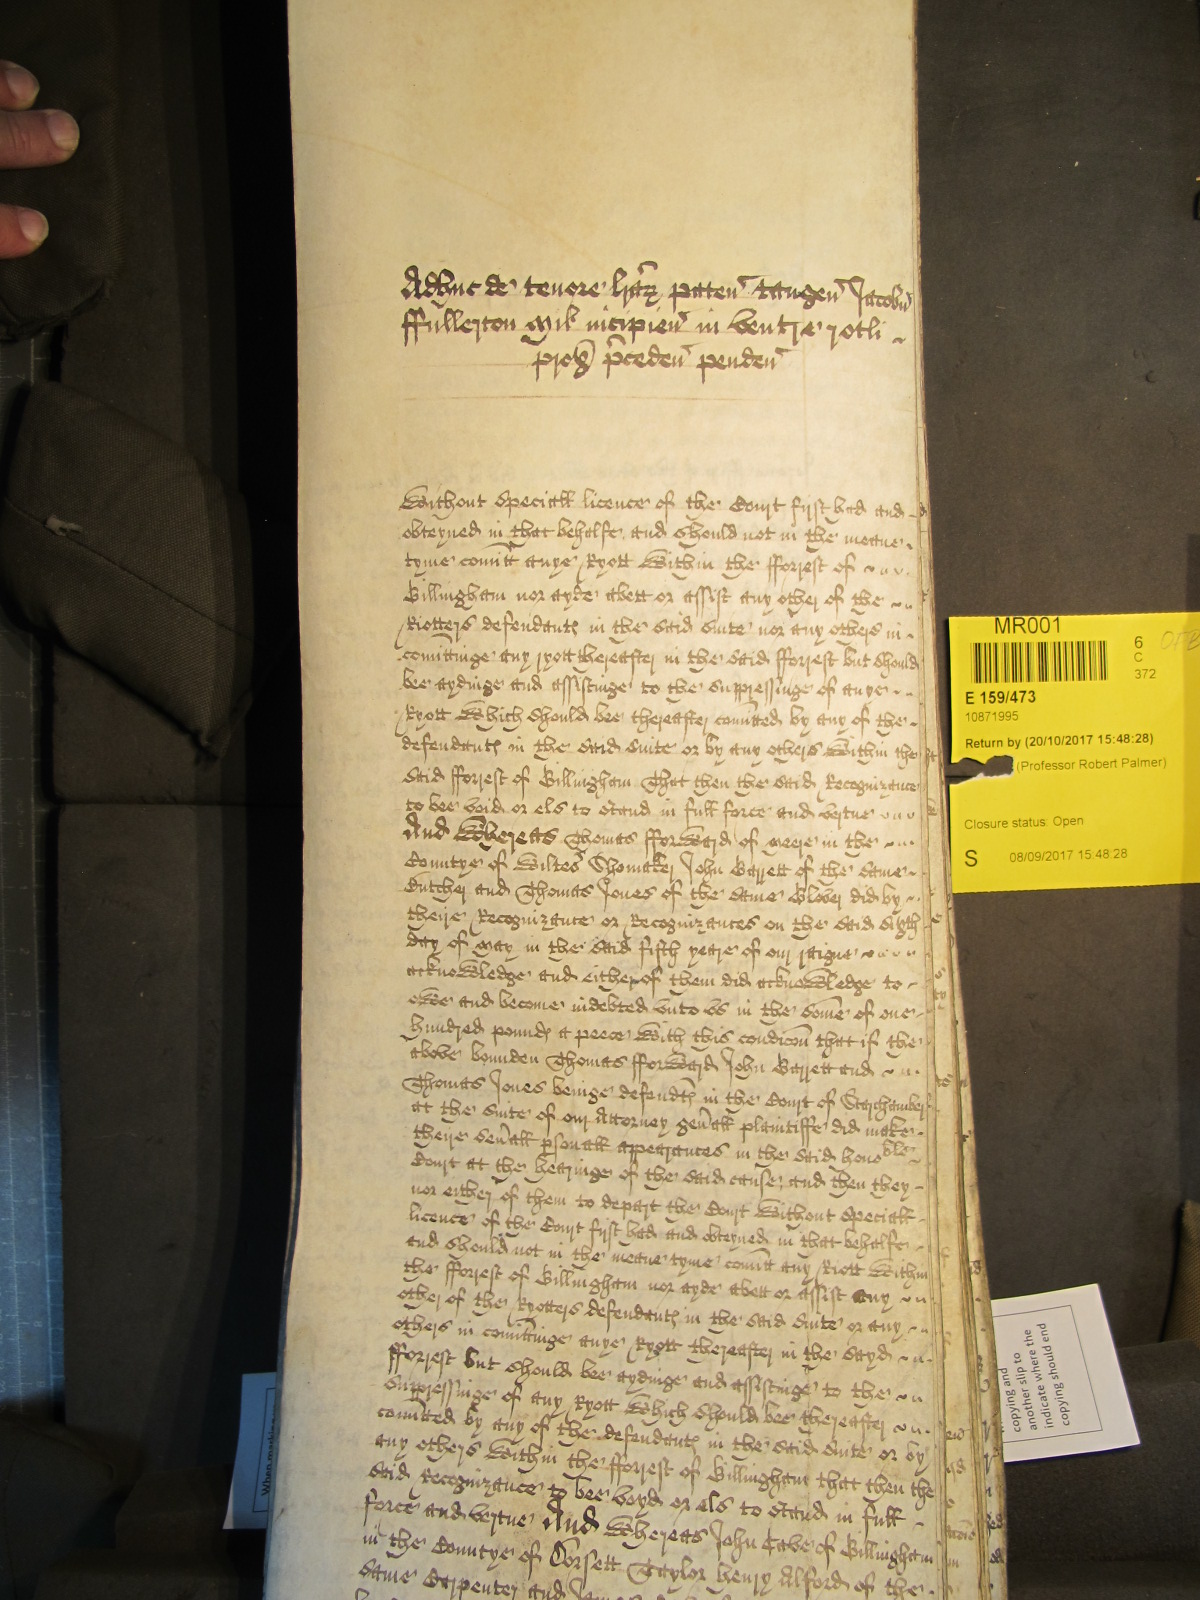 Adhuc de tenore lrãr paten tangen Jacobu
ffullerton Mil incipien in ventre rotli
prox p̃ceden penden
Without speciall licence of the Court first had and
obteyned in that behalfe and should not in the meane
tyme comitt anye Ryott within the fforrest of
Gillingham nor ayde abett or assist any other of the
Riotters defendants in the said suite nor any others in
comittinge any ryott thereafter in the said fforrest but should
bee aydinge and assistinge to the suppressinge of anye
Ryott which should bee thereafter comitted by any of the
defendants in the said suite or by any others within the
said fforrest of Gillingham That then the said Recognizance
to bee void or els to stand in full force and vertue
And Whereas Thomas fforward of Meere in the
Countye of Wiltes Shomaker John Barrett of the same
Butcher and Thomas Jones of the same Glover did by
theire Recognizance or Recognizances on the said sixth
day of May in the said fifth yeare of our raigne
acknowledge and either of them did acknowledge to
owe and become indebted unto us in the some of one
hundred pounds a peece With this condicon that if the
above bounden Thomas fforward John Barrett and
Thomas Jones beinge defendts in the Court of Starchamber
at the suite of our Attorney genall plaintiffe did make
theire seuall psonall appearances in the said hono ble
Court at the hearinge of the said cause and then they
nor either of them to depart the Court without speciall
licence of the Court first had and obteyned in that behalfe
and should not in the meane tyme comitt any Riott within
the fforrest of Gillingham nor ayde abett or assist any
other of the Ryotters defendants in the said suite or any
others in comittinge anye Ryott thereafter in the sayd
fforrest but should bee aydinge and assistinge to the
suppressinge of any Ryott which should bee thereafter
comitted by any of the defendants in the said suite or by
any others within the fforrest of Gillingham that then the
said Recognizance to bee voyd or els to stand in full
force and vertue And Whereas John Cave of Gillingham
in the Countye of Dorsett Taylor Henry Alford of the
same Carpenter and
MR001
6
C
372
E 159/473
10871995
Return by (20/10/2017 15:48:28)
(Professor Robert Palmer)
Closure status: Open
S 08/09/2017 15:48:28
copying and
another slip to
indicate where the
copying should end
When